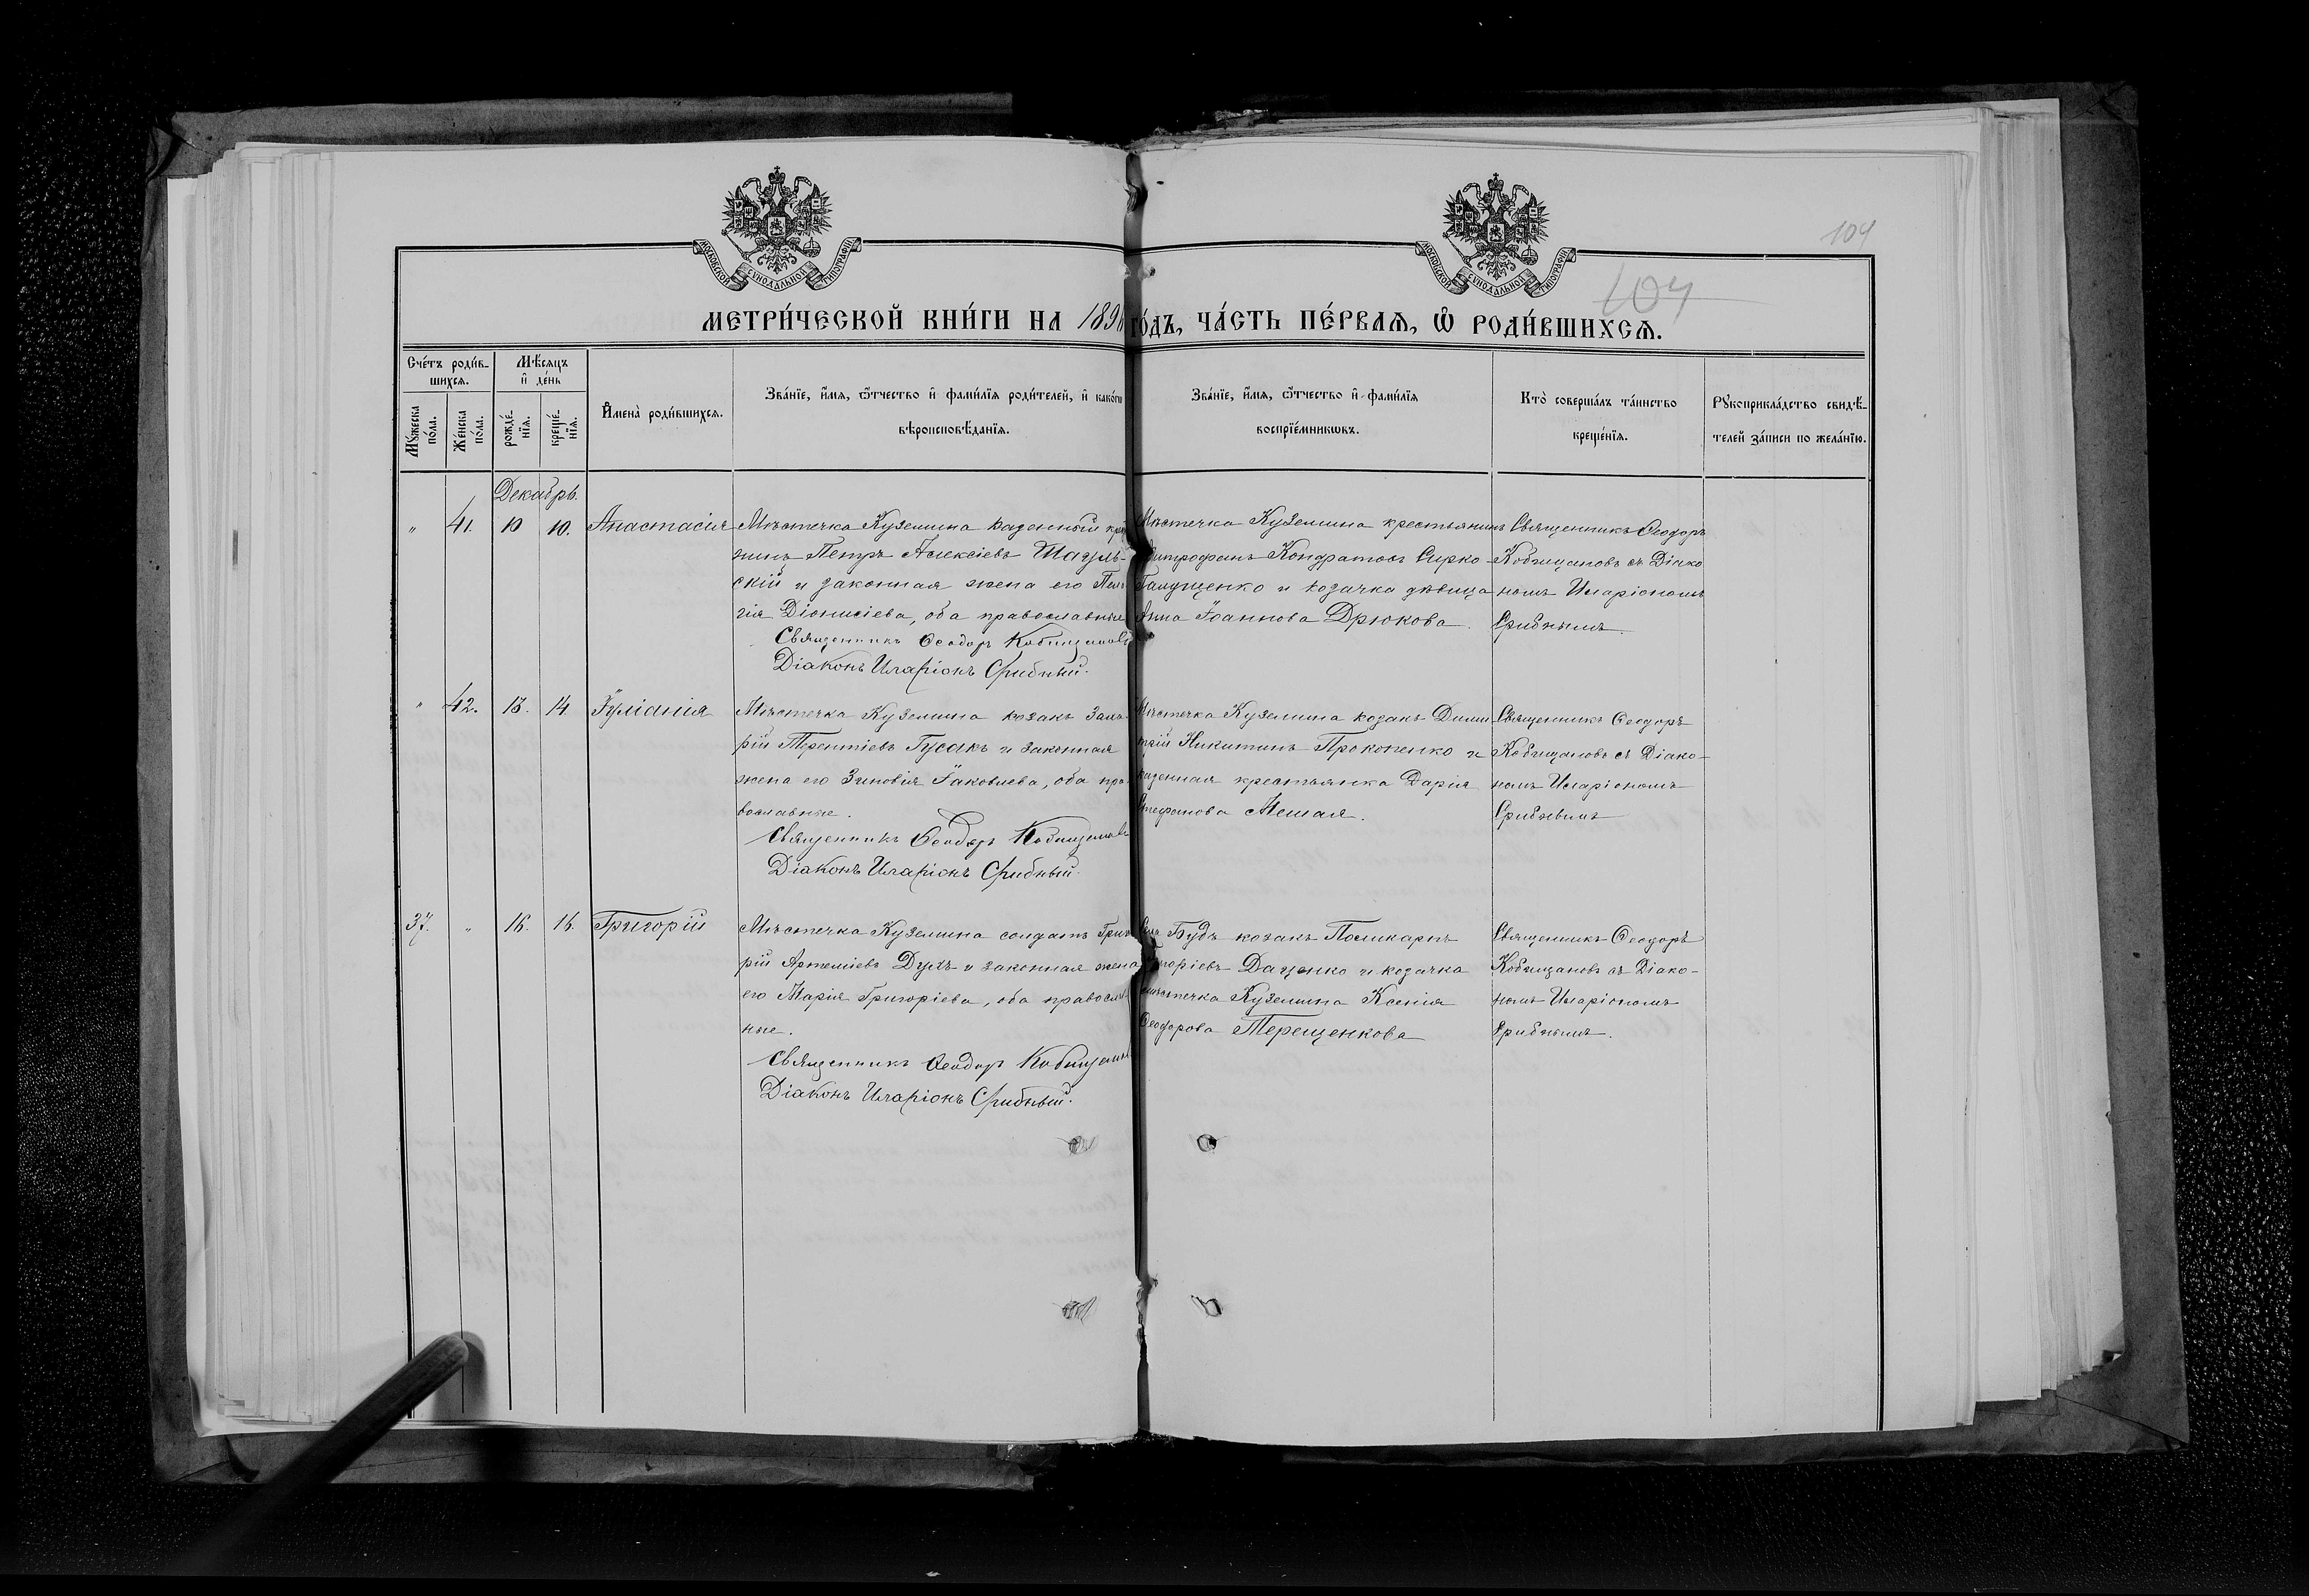 104
104
МОСКОВСКОЙ СѴНОДАЛЬНОЙ ТИПОГРАФІИ
МОСКОВСКОЙ СѴНОДАЛЬНОЙ ТИПОГРАФІИ
МЕТРИ́ЧЕСКОЙ КНИ́ГИ НА ГО́ДЪ, ЧА́СТЬ ПЕ́РВАѦ, Ѡ҆ РОДИ́ВШИХСѦ.
Сче́тъ роди́в-
шихся.
Мѣ́сяцъ
и҆ де́нь
Мꙋ́жеска по́ла.
Же́нска по́ла.
рожде́-
нїя.
креще́-
нїя.
И҆мена̀ роди́вшихся.
Зва́нїе, и҆́мя, ѻ҆́тчество и҆ фами́лїя роди́телей, и҆ како́гѡ
вѣроисповѣ́данїя.
Зва́нїе, и҆́мя, ѻ҆́тчество и҆ фами́лїя
воспрїе́мникѡвъ.
Кто̀ соверша́лъ та́инство
креще́нїя.
Рꙋкоприкла́дство свидѣ́-
телей за́писи по жела́нїю.
Декабрь.
" 41. 10 10. Анастасія
Мѣстечка Куземина казенный
нинъ Петръ Алексіевъ
скій и законная жена его
гія Діонисіева, оба православные
Священникъ Ѳеодоръ Кобищановъ
Діаконъ Иларіонъ Срибный.
Мѣстечка Куземина крестьянинъ
Митрофанъ Кондратовъ Сирко-
Галущенко и козачка дѣвица
Анна Іоаннова Дрюкова.
Священникъ Ѳеодоръ
Кобищановъ съ Діако
номъ Иларіономъ
Срибнымъ.
" 42. 13. 14 Іуліанія
Мѣстечка Куземина козакъ Заха-
рій Терентіевъ Гусакъ и законная
жена его Зиновія Іаковлева, оба пра-
вославные.
Священникъ Ѳеодоръ Кобищановъ
Діаконъ Иларіонъ Срибный.
Мѣстечка Куземина козакъ Дими
трій Никитинъ Прокопенко и
казенная крестьянка Дарія
Стефанова
Священникъ Ѳеодоръ
Кобищановъ съ Діако-
номъ Иларіономъ
Срибнымъ
37. " 16. 16. Григорій
Мѣстечка Куземина солдатъ Григо
рій Артеміевъ Духъ и законная жена
его Марія Григоріева, оба православ
ные.
Священникъ Ѳеодоръ Кобищановъ
Діаконъ Иларіонъ Срибный.
Села Будъ козакъ Поликарпъ
Григоріевъ Даценко и козачка
мѣстечка Куземина Ксенія
Ѳеодорова Терещенкова
Священникъ Ѳеодоръ
Кобищановъ съ Діако-
номъ Иларіономъ
Срибнымъ.